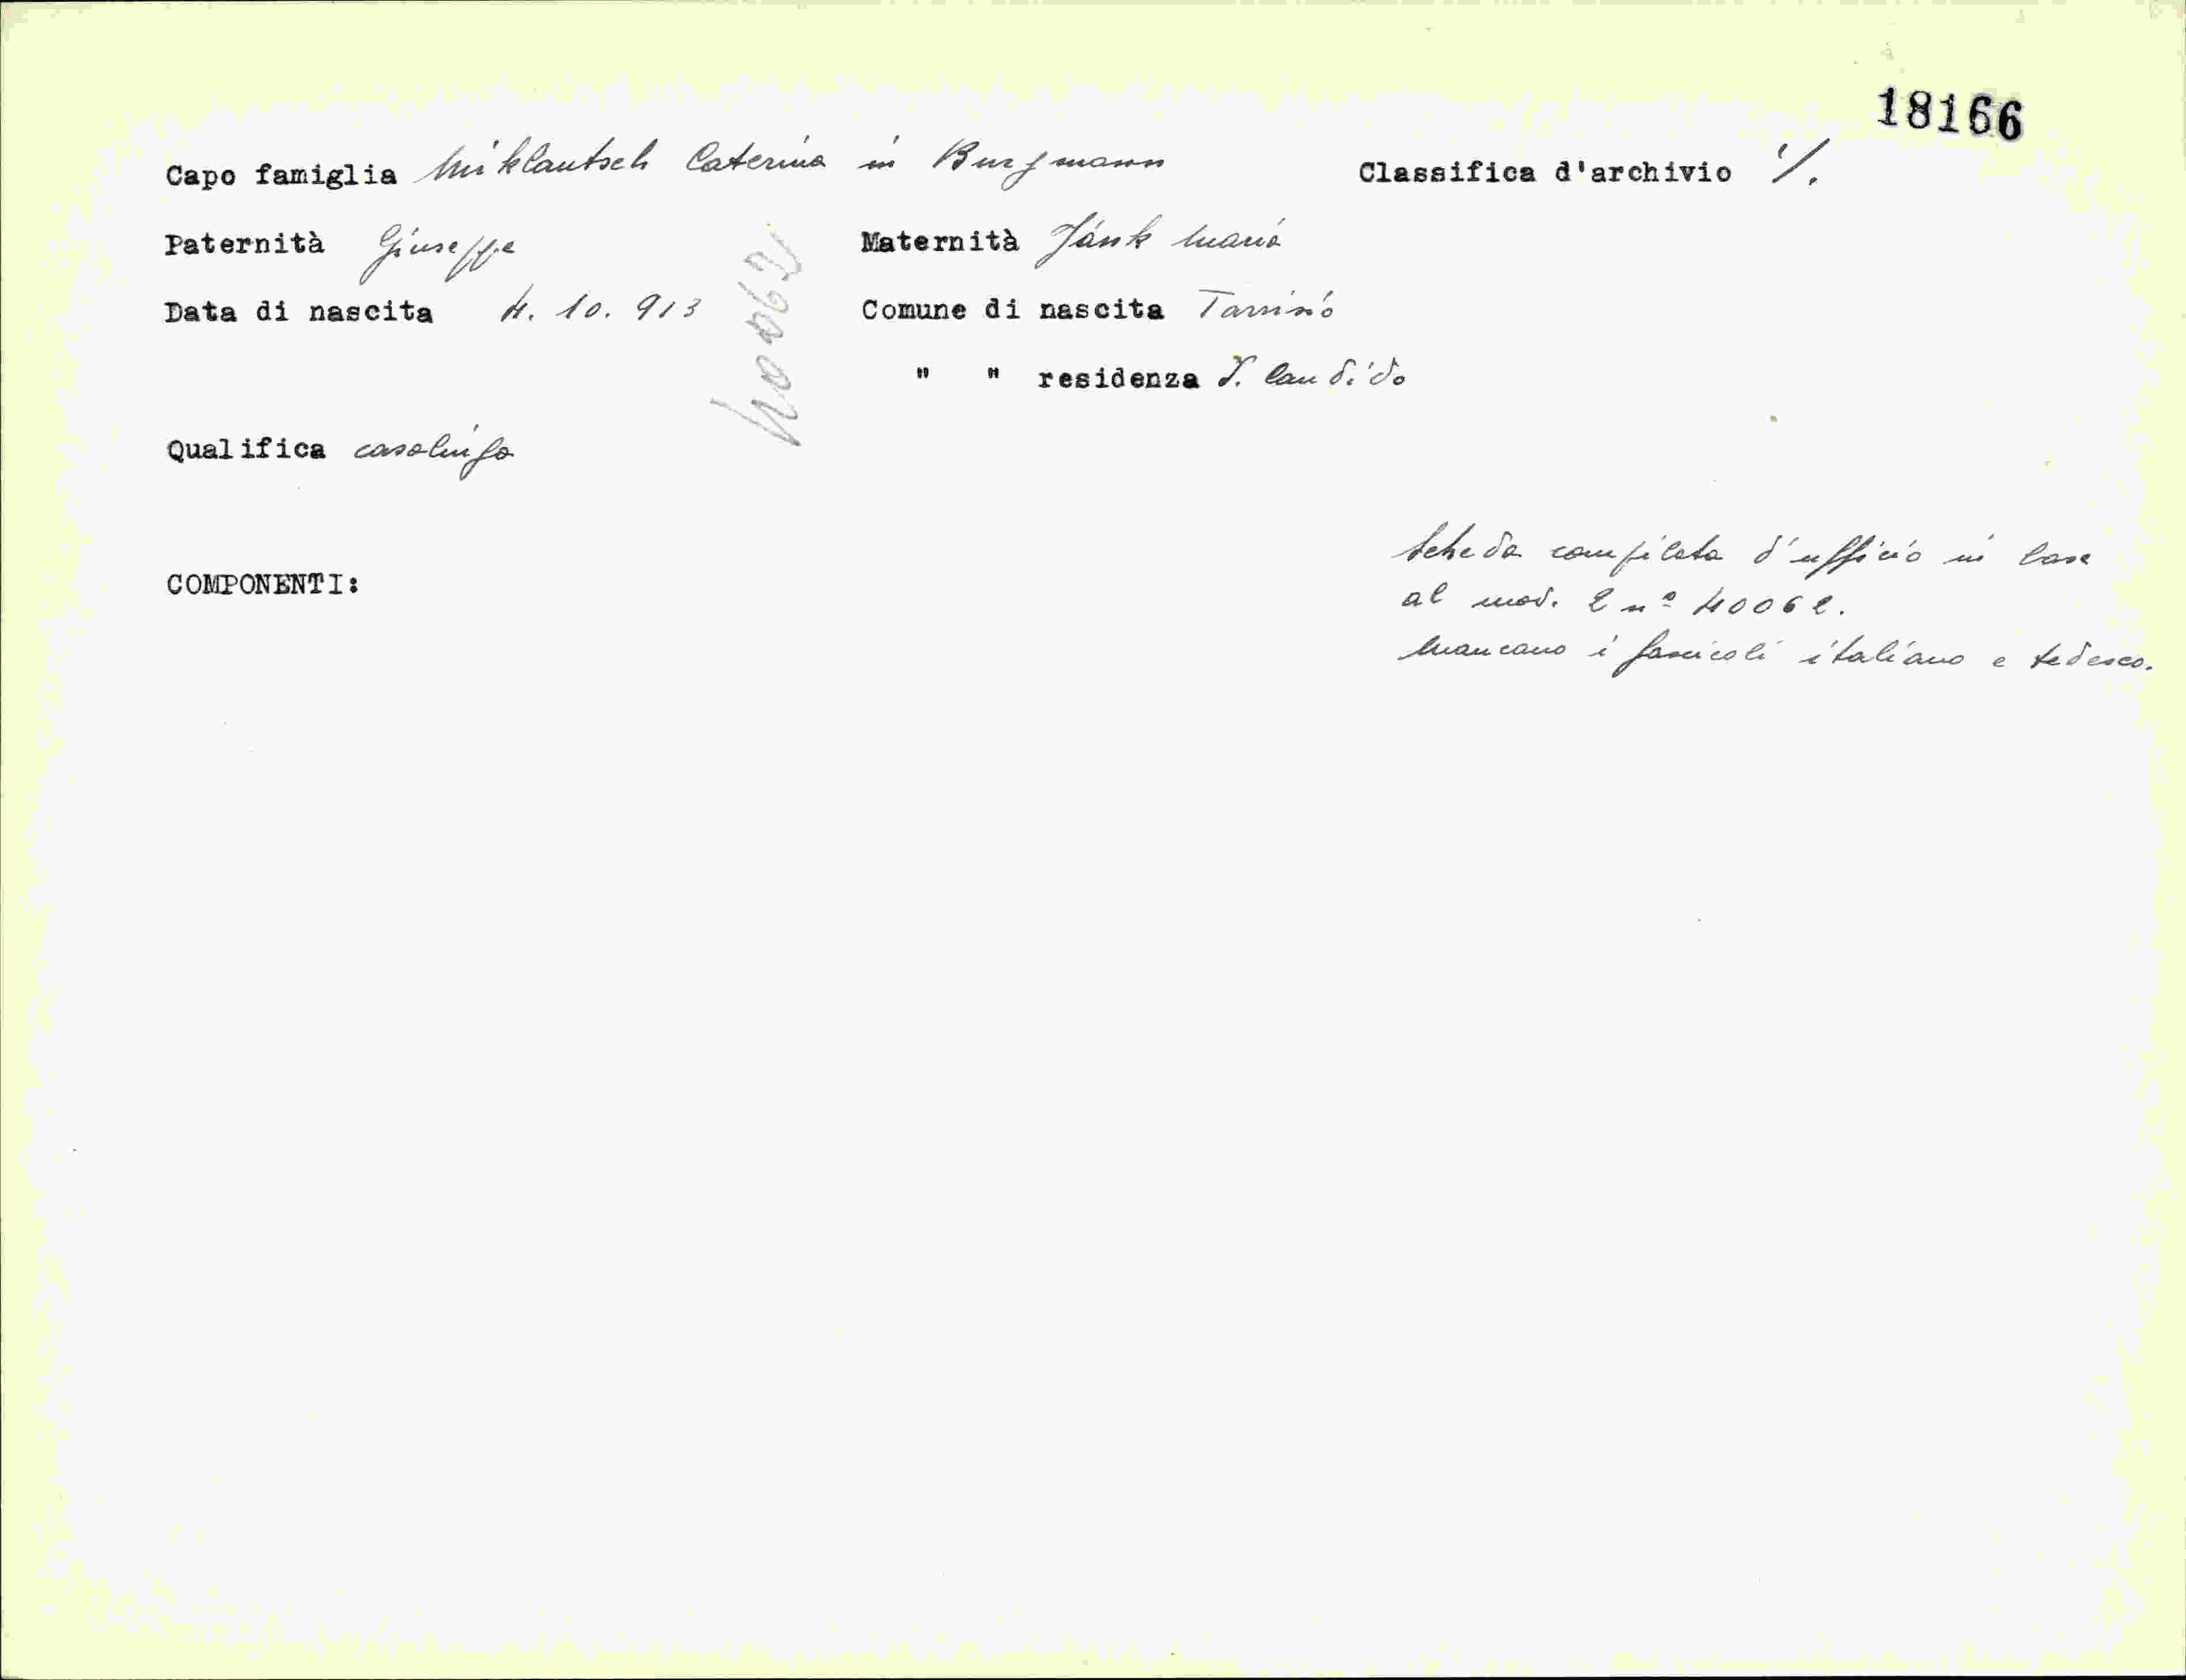 18166
Capo famiglia Miklautsch Caterina in Burgmann Classifica d'archivio ·/.
Paternità Giuseppe Maternità Jank Maria
Data di nascita 4. 10. 913 Comune di nascita Tarvisio
40062
" " residenza S. Candido
Qualifica casalinga
COMPONENTI:
Scheda compilata d'ufficio in base
al mod. 2 nº 40062.
Mancano i fascicoli italiano e tedesco.